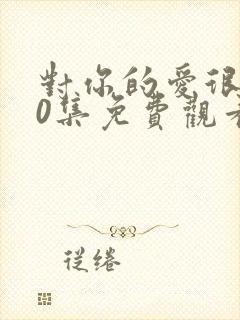 對你的愛很
0集免費觀看
從绻